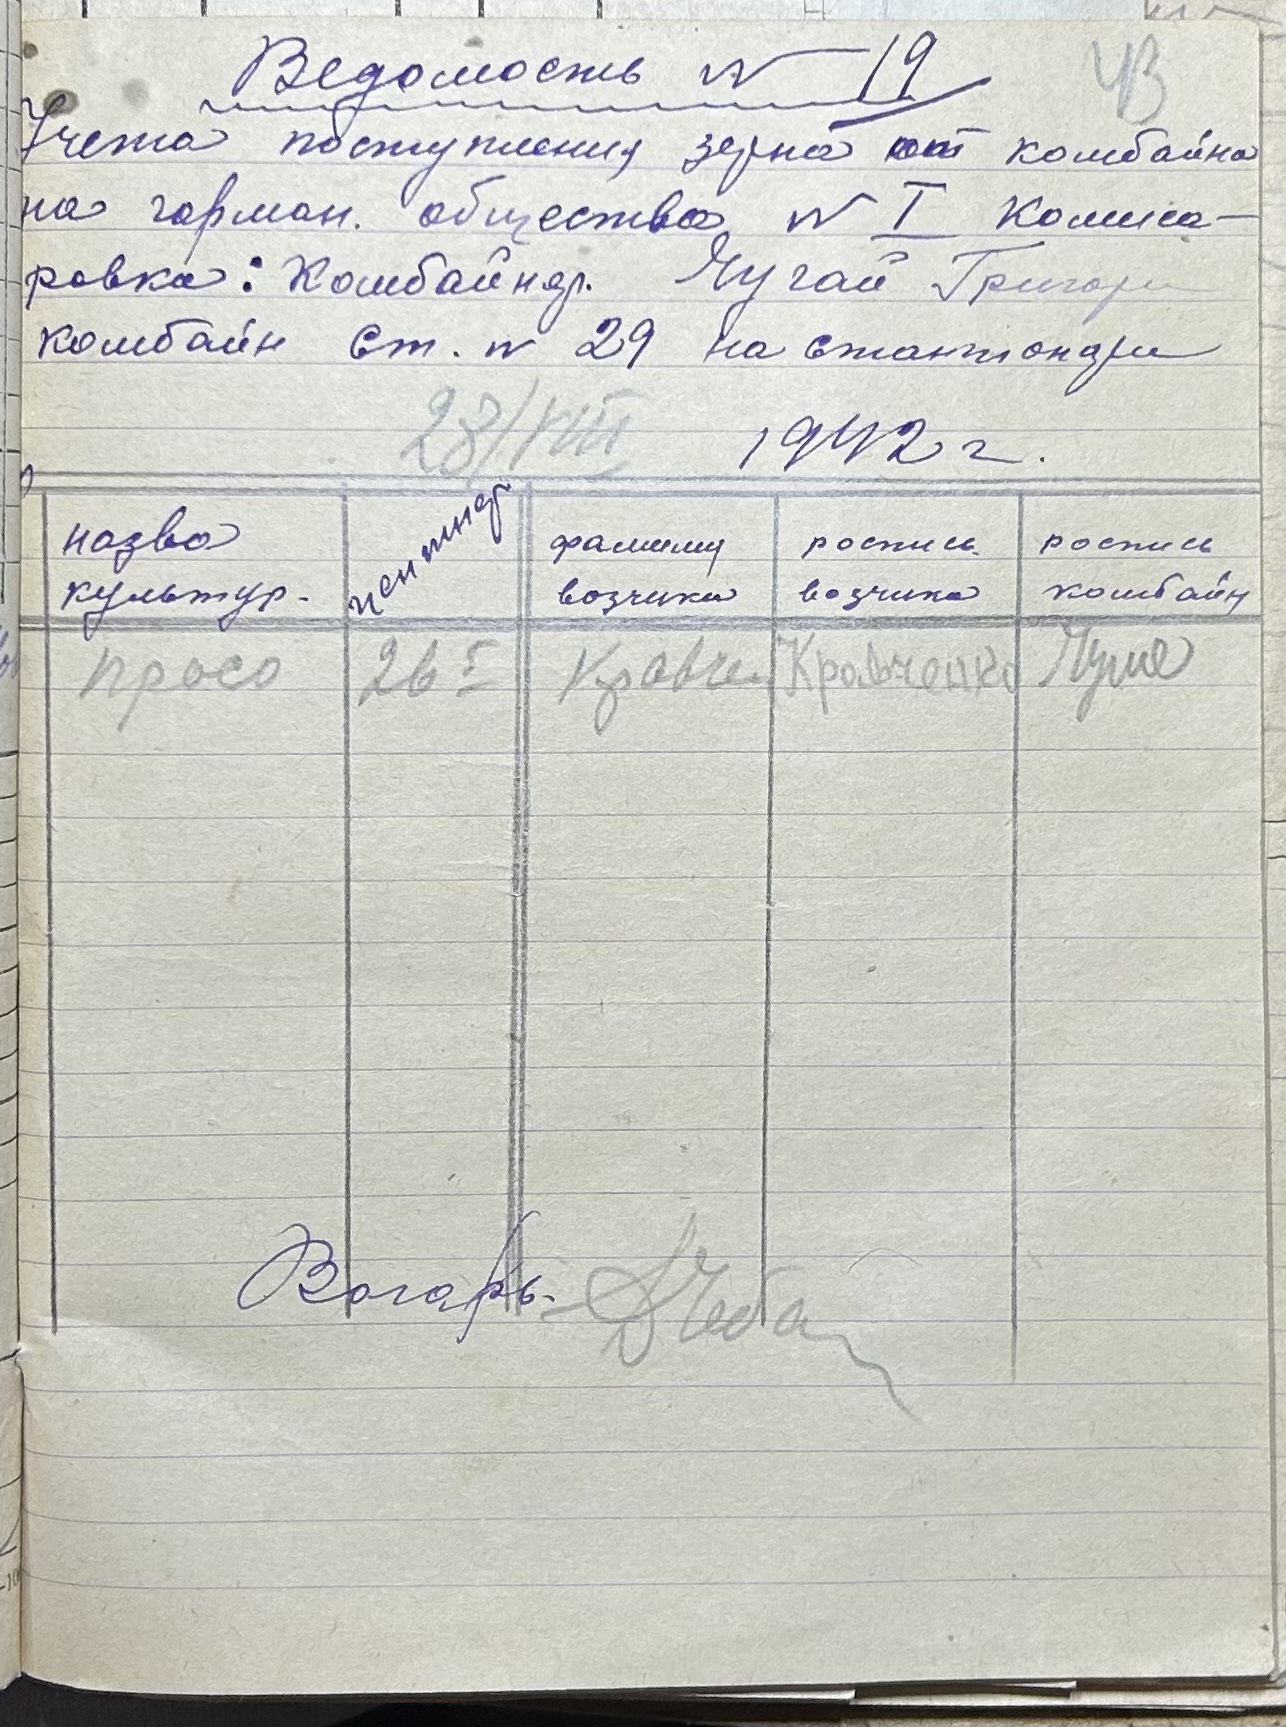 Ведомость № 19
Учета поступления зерна от комбайна
на гарман. общества № I Комиса-
ровка: Комбайнер. Чугай Григори
комбайн Ст. № 29 на
23/VIII 1942 г.
назва культур. центнер фамилия возчика роспись возчика роспись комбайн
просо 26 Кравчен Кравченко
Вагарь-